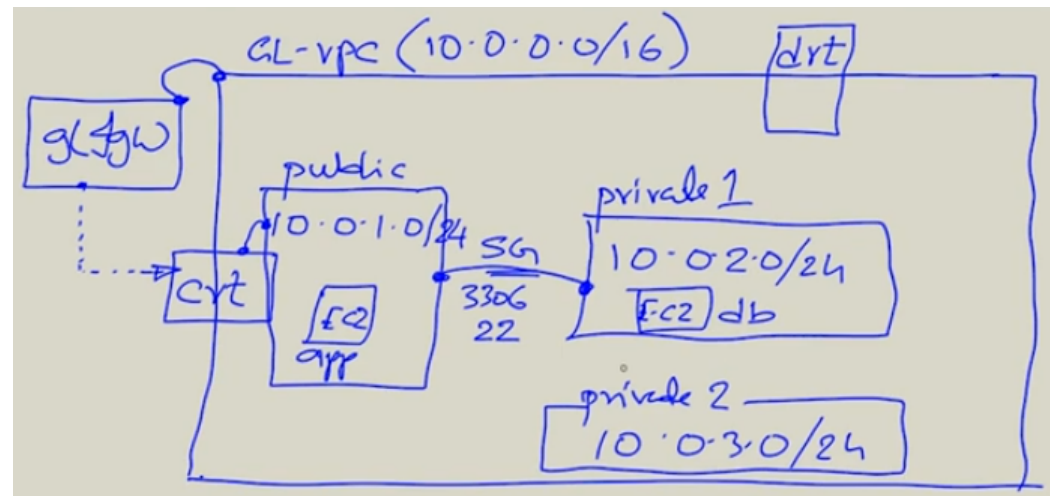 GL-vpc (10.0.0.0/16)
drt
public
10.0.1.0/24
crt
EC2
app
SG
3306
22
private 1
10.0.2.0/24
EC2 db
private 2
10.0.3.0/24